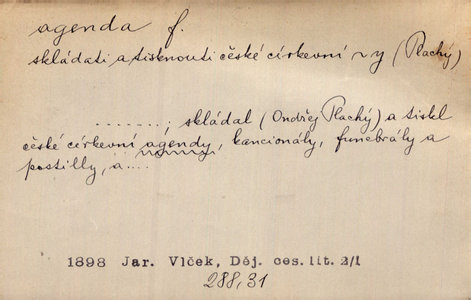 agenda f.
skládati a tisknouti české církevní ~y (Plachý)
........; skládal (Ondřej Plachý) a tiskl
české církevní agendy, kancionály, funebrály a
postilly, a....
1898 Jar. Vlček, Děj. čes. lit. 2/1
288,31